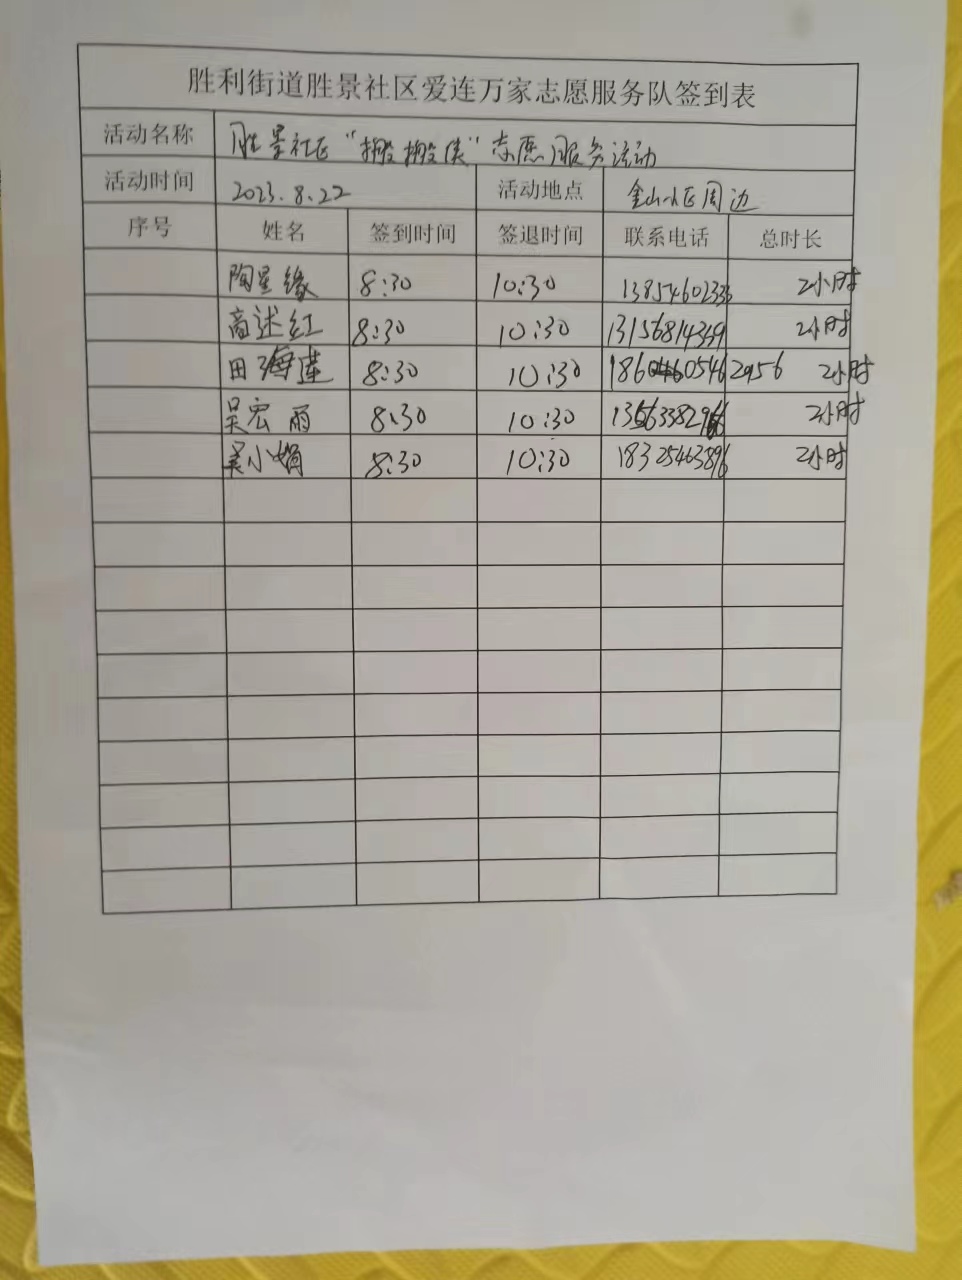 胜利街道胜景社区爱连万家志愿服务队签到表
活动名称 胜景社区“搬搬侠”志愿服务活动
活动时间 2023.8.22 活动地点 金山小区周边
序号 姓名 签到时间 签退时间 联系电话 总时长
陶星缘 8:30 10:30 13854602333 2小时
商述红 8:30 10:30 13156814349 2小时
田海莲 8:30 10:30 2小时
吴宏雨 8:30 10:30 2小时
吴小娟 8:30 10:30 18325463896 2小时